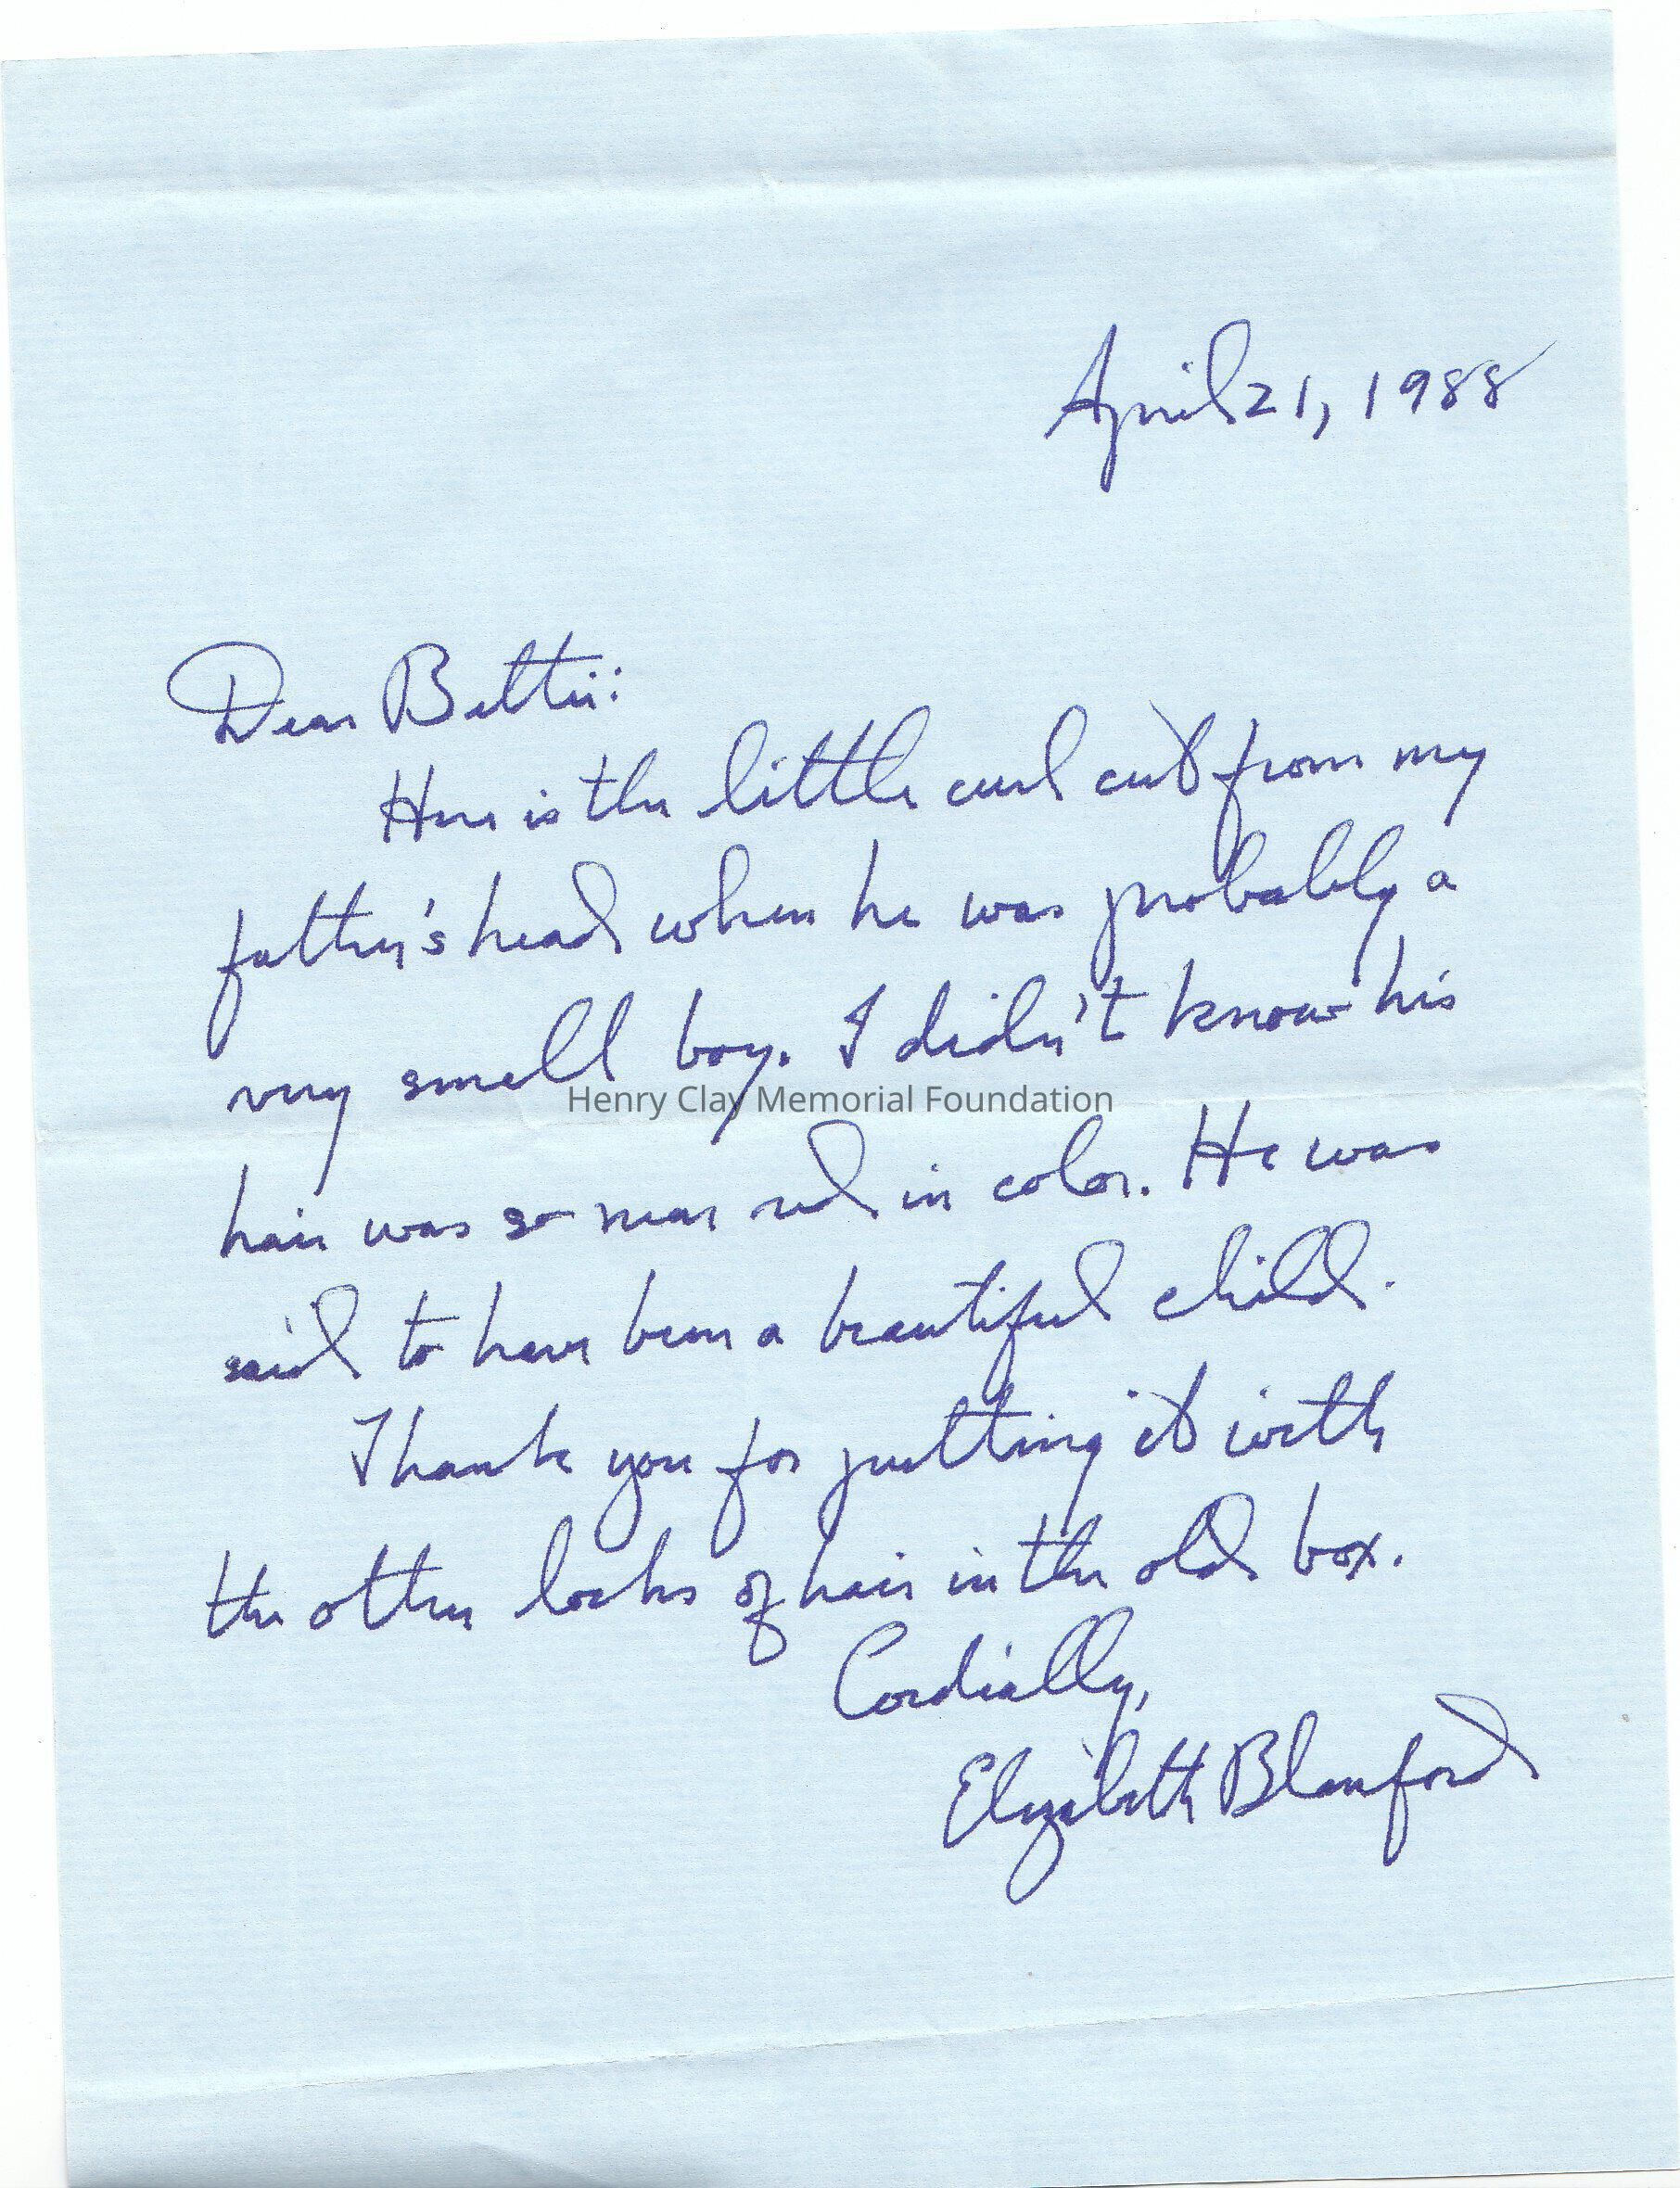 April 21, 1988
Dear Bettie:
Here is the little curl cut from my
father's head when he was probably a
very small boy. I didn't know his
Henry Clay Memorial Foundation
hair was so near red in color. He was
said to have been a beautiful child.
Thank you for putting it with
the other locks of hair in the old box.
Cordially,
Elizabeth Blanford